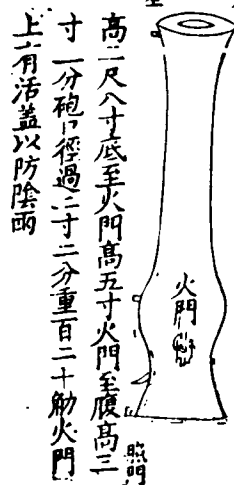 火門
照門
高二尺八寸底至火門高五寸火門至腹高三
寸一分砲口徑過二寸二分重百二十觔火門
上有活蓋以防陰雨